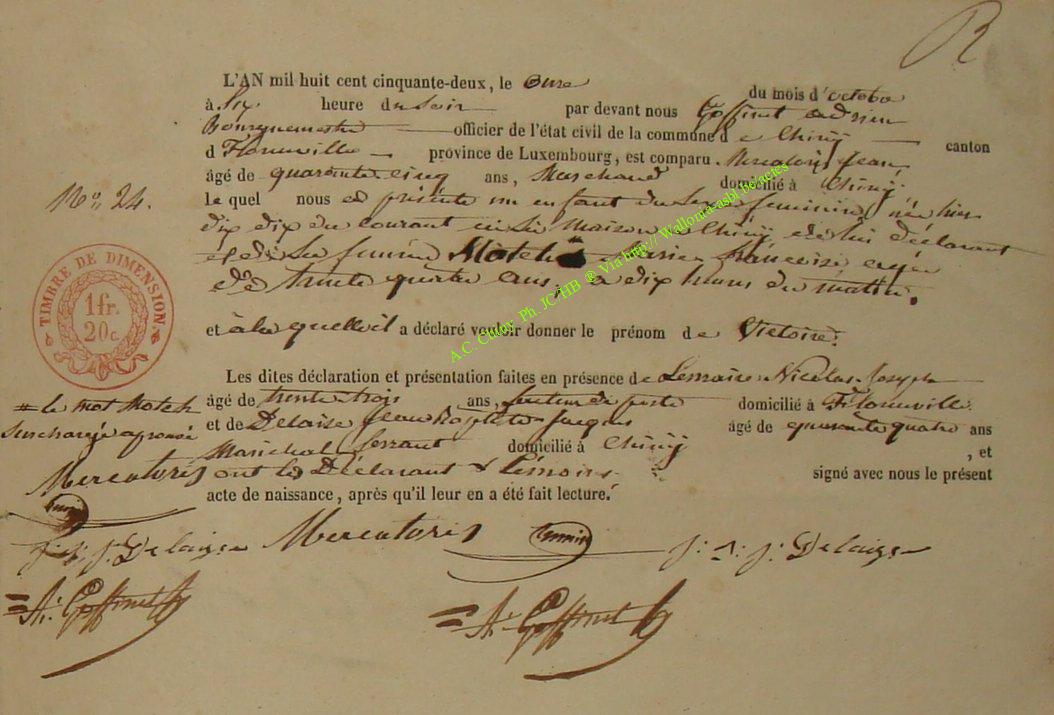 R
L'AN mil huit cent cinquante-deux, le onze du mois d'octobre
à Six heure du Soir par devant nous Goffinet Adrien
Bourguemestre officier de l'état civil de la commune de Chiny canton
d Florenville province de Luxembourg, est comparu Mercatoris Jean
âgé de quarante cinq ans, Marchand domicilié à Chiny
le quel nous a présenté un enfant du Sexe féminin, née hier
dix du courant en Sa Maison à Chiny de lui déclarant
et de Sa femme Motch Marie françoise agée
de trente quatre ans, à dix heures du matin.
et à la quelle il a déclaré vouloir donner le prénom de Victoire.
Les dites déclaration et présentation faites en présence de Lemaire Nicolas Joseph
âgé de trente trois ans, facteur de poste domicilié à Florenville
et de Delaise Jean Baptiste Jacques âgé de quarante quatre ans
Maréchal ferrant domicilié à Chiny , et
ont les Déclarant & témoins signé avec nous le présent
acte de naissance, après qu'il leur en a été fait lecture.
N° 24.
TIMBRE DE DIMENSION
1 fr.
20 c.
le mot Motch
Surchargé aprouvé
Mercatoris
J. B. J. Delaize
A. Goffinet
Mercatoris
J. B. J. Delaize
A. Goffinet
A.C. Chiny Ph. JC HB ® Via http://Wallonia-asbl.be/actes